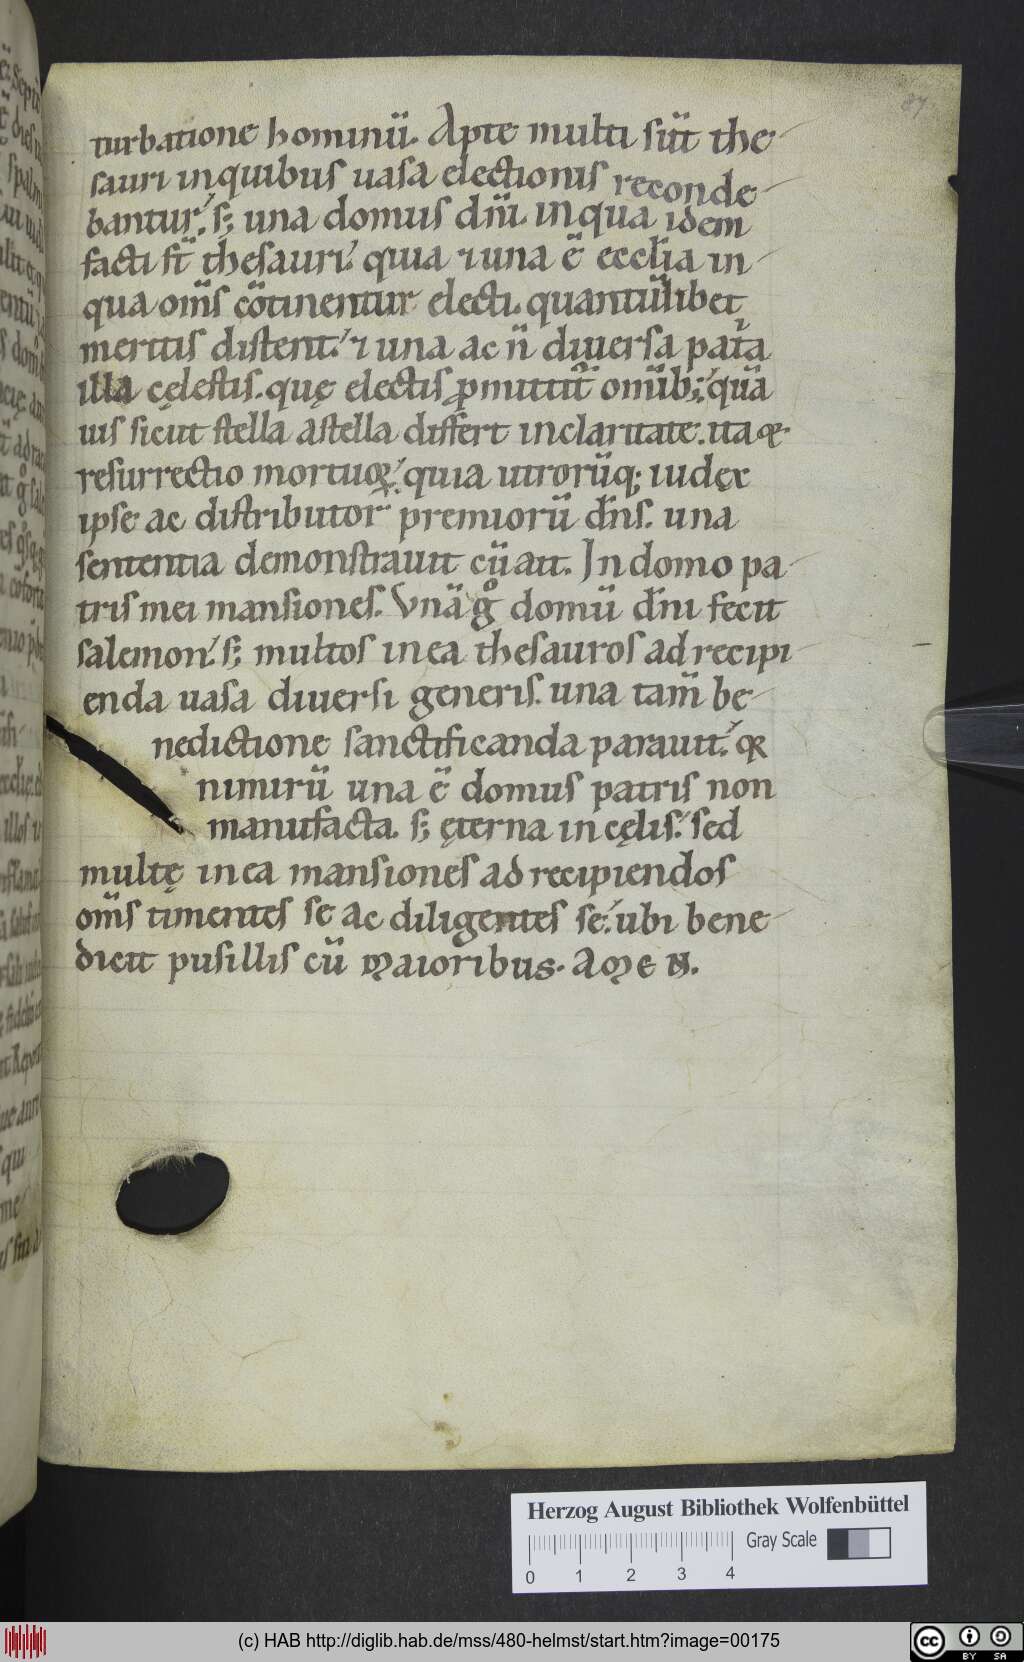 turbatione hominū. Apte multi sūt the
sauri inquibus uasa electionis reconde
bantur. s; una domus dn̄i inqua idem
facti st̄ thesauri. quia ⁊ una ē ecclīa in
qua om̄s cōtinentur electi. quantūlibet
meritis distent. ⁊ una ac n̄ diuersa pat̄a
illa cęlestis. quę electis ꝓmittit᷑ omīb; quā
uis sicut stella astella differt inclaritate. ita ⁊
resurrectio mortuoꝝ. quia utrorūq; iudex
ipse ac distributor premiorū dn̄s. una
sententia demonstrauit cū ait. In domo pa
tris mei mansiones. Vnā gͦ domū dn̄i fecit
salemon. s; multos inea thesauros ad recipi
enda uasa diuersi generis. una tam̄ be
nedictione sanctificanda parauit. qꝛ
nimirū una ē domus patris non
manufacta. s; ęterna incęlis. sed
multę inea mansiones ad recipiendos
om̄s timentes se ac diligentes se. ubi bene
dicit pusillis cū maioribus. AMEN.
Herzog August Bibliothek Wolfenbüttel
Gray Scale
0 1 2 3 4
(c) HAB http://diglib.hab.de/mss/480-helmst/start.htm?image=00175
cc BY SA